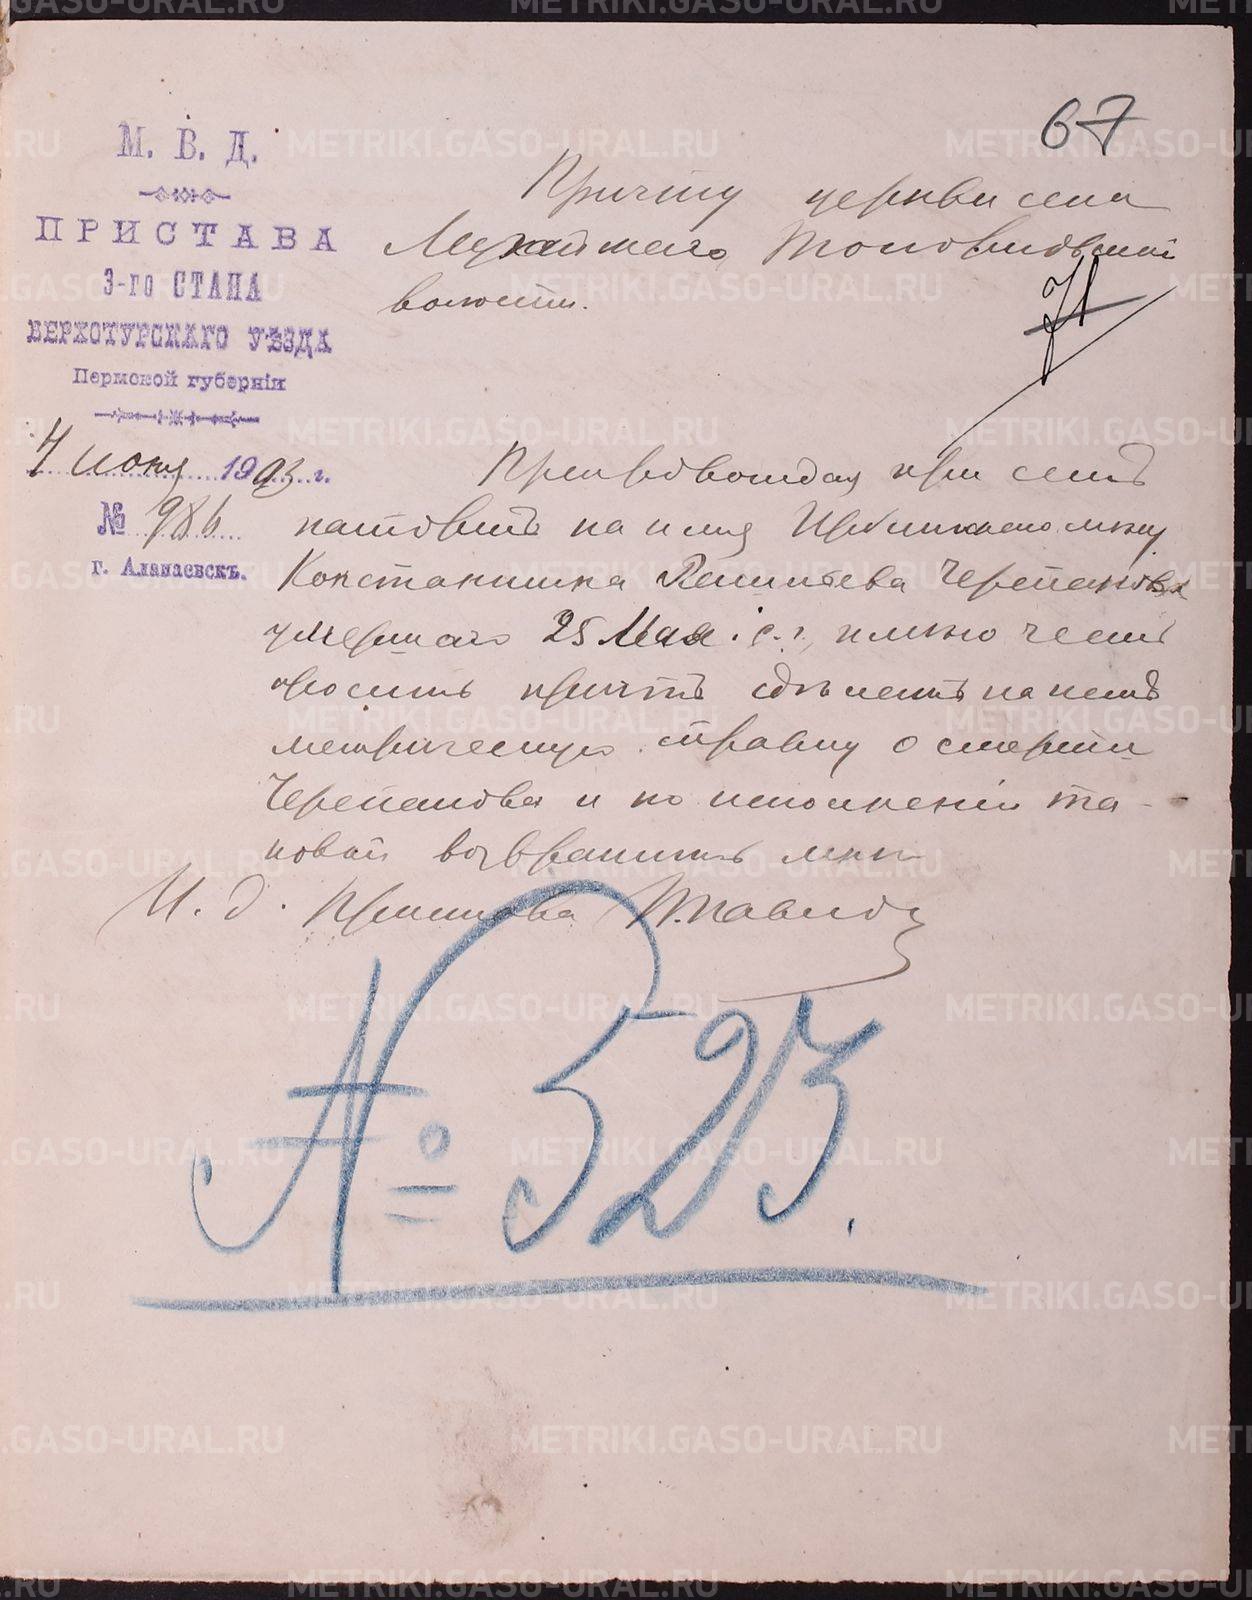 67
М. В. Д.
ПРИСТАВА
3-го СТАНА
ВЕРХОТУРСКАГО УѢЗДА
Пермской губерніи
4 июня 1903 г.
№ 986
г. Алапаевскъ.
Причту церкви села
Мугайскаго Топорковской
волости.
71
Препровождая при семъ
паспортъ на имя
Константина Черепанова
умершаго 25 Мая с. г., имѣю честь
просить причтъ сдѣлать на немъ
метрическую справку о смерти
Черепанова и по исполненіи та-
ковой возвратить мнѣ
И. д. Пристава
№ 523.
METRIKI.GASO-URAL.RU